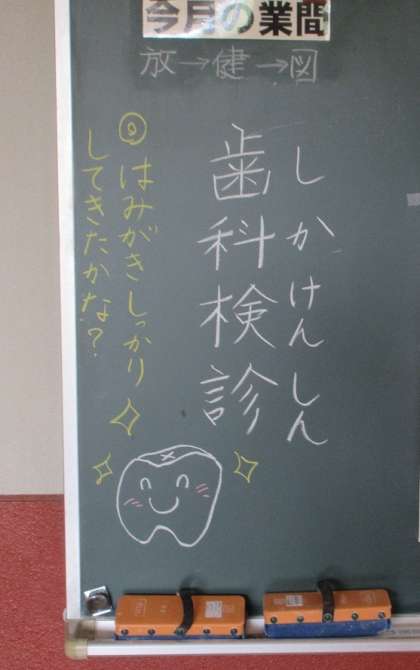 今月の業間
放→健→図
しかけんしん
歯科検診
◎はみがきしっかり
してきたかな?